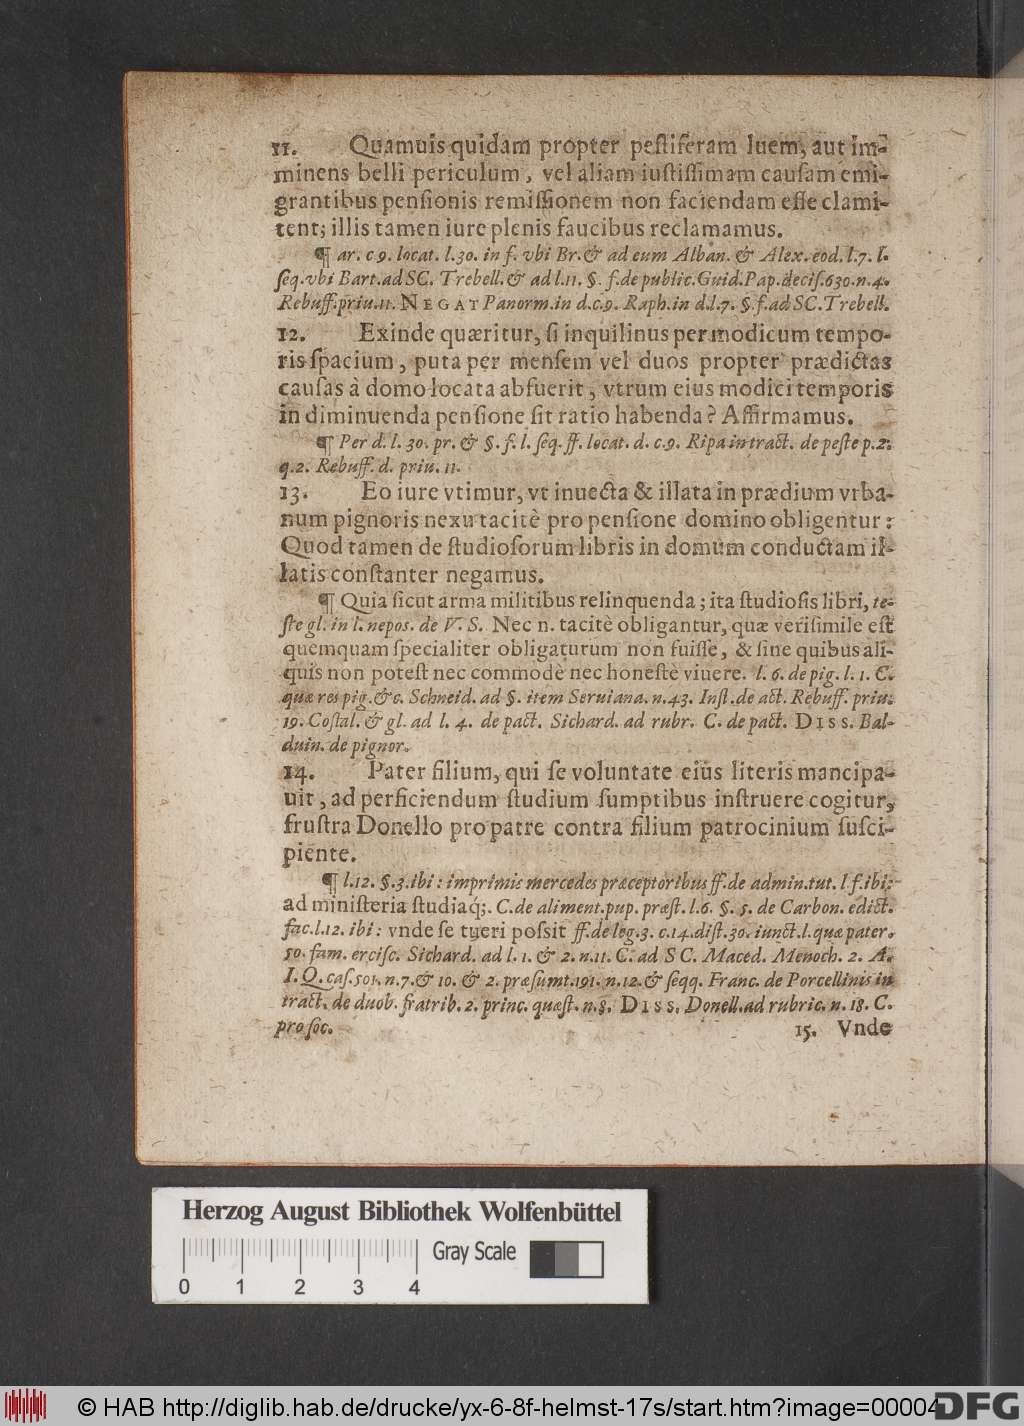 11. Quamuis quidam propter pestiferam luem, aut im-
minens belli periculum, vel aliam iustissimam causam emi-
grantibus pensionis remissionem non faciendam esse clami-
tent; illis tamen iure plenis faucibus reclamamus.
¶ ar. c 9. locat. l. 30. in f. vbi Br. & ad eum Alban. & Alex. eod. l. 7. l.
seq. vbi Bart. ad SC. Trebell. & ad l. 11. §. f. de public. Guid. Pap. decis. 630. n. 4.
Rebuff. priu. 11. NEGAT Panorm. in d. c. 9. Raph. in d. l. 7. §. f. ad SC. Trebell.
12. Exinde quæritur, si inquilinus per modicum tempo-
ris spacium, puta per mensem vel duos propter prædictas
causas à domo locata abfuerit, vtrum eius modici temporis
in diminuenda pensione sit ratio habenda? Affirmamus.
¶ Per d. l. 30. pr. & §. f. l. seq. ff. locat. d. c. 9. Ripa in tract. de peste p. 2.
q. 2. Rebuff. d. priu. 11.
13. Eo iure vtimur, vt inuecta & illata in prædium vrba-
num pignoris nexu tacitè pro pensione domino obligentur:
Quod tamen de studiosorum libris in domum conductam il-
latis constanter negamus.
¶ Quia sicut arma militibus relinquenda; ita studiosis libri, te-
ste gl. in l. nepos. de V. S. Nec n. tacitè obligantur, quæ verisimile est
quemquam specialiter obligaturum non fuisse, & sine quibus ali-
quis non potest nec commodè nec honestè viuere. l. 6. de pig. l. 1. C.
quæ res pig. &c. Schneid. ad §. item Seruiana. n. 43. Inst. de act. Rebuff. priu.
19. Costal. & gl. ad l. 4. de pact. Sichard. ad rubr. C. de pact. DISS. Bal-
duin. de pignor.
14. Pater filium, qui se voluntate eius literis mancipa-
uit, ad perficiendum studium sumptibus instruere cogitur,
frustra Donello pro patre contra filium patrocinium susci-
piente.
¶ l. 12. §. 3. ibi: imprimis mercedes præceptoribus ff. de admin. tut. l f. ibi:
ad ministeria studiaq;. C. de aliment. pup. præst. l. 6. §. 5. de Carbon. edict.
fac. l. 12. ibi: vnde se tueri possit ff. de leg. 3. c. 14. dist. 30. iunct. l. quæ pater.
50. fam. ercisc. Sichard. ad l. 1. & 2. n. 11. C. ad SC. Maced. Menoch. 2. A.
I. Q. cas. 501. n. 7. & 10. & 2. præsumt. 191. n. 12. & seqq. Franc. de Porcellinis in
tract. de duob. fratrib. 2. princ. quæst. n. 9. DISS. Donell. ad rubric. n. 18. C.
pro soc.
15. Vnde
Herzog August Bibliothek Wolfenbüttel
0 1 2 3 4 Gray Scale
© HAB http://diglib.hab.de/drucke/yx-6-8f-helmst-17s/start.htm?image=00004
DFG